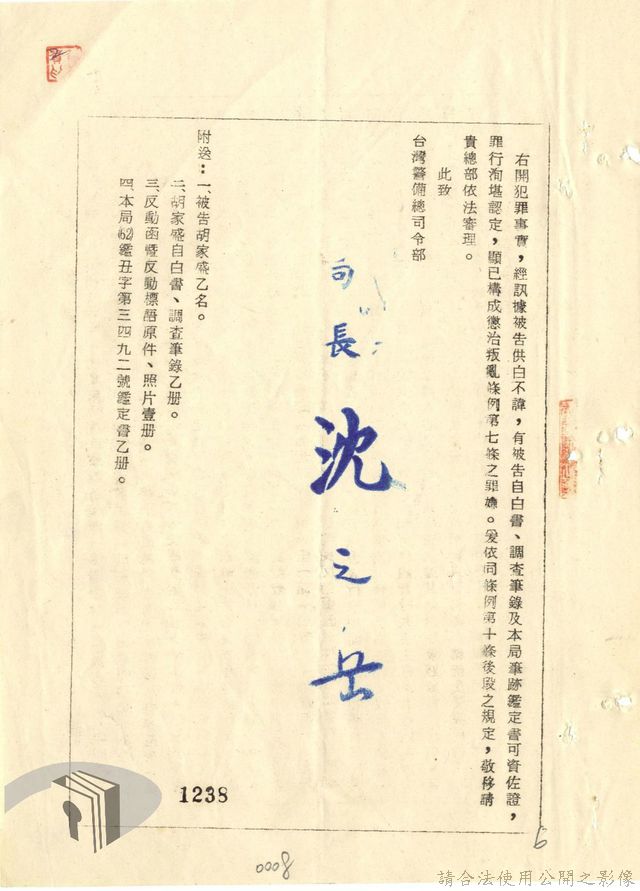 右開犯罪事實，經訊據被告供白不諱，有被告自白書、調查筆錄及本局筆跡鑑定書可資佐證，
罪行洵堪認定，顯已構成懲治叛亂條例第七條之罪嫌。爰依同條例第十條後段之規定，敬移請
貴總部依法審理。
此致
台灣警備總司令部
局長 沈之岳
附送：一、被告胡家盛乙名。
二、胡家盛自白書、調查筆錄乙册。
三、反動函暨反動標語原件、照片壹册。
四、本局(62)鑑丑字第三四九二號鑑定書乙册。
1238
0008
請合法使用公開之影像